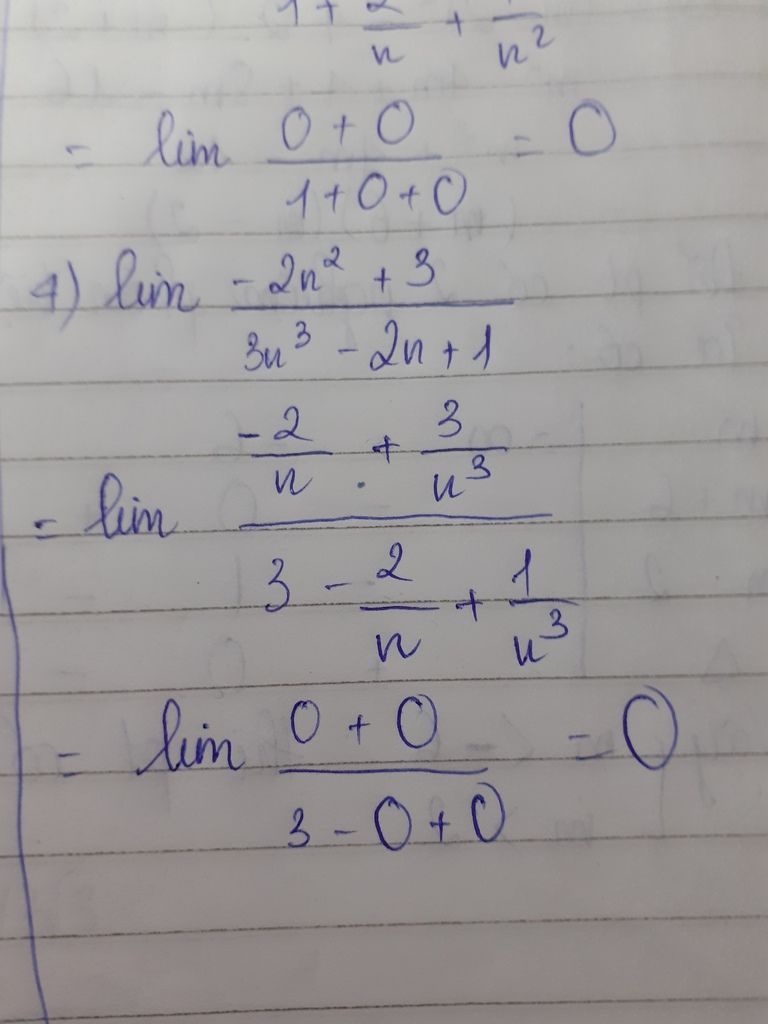 1 + 2/n + 1/n²
= lim (0 + 0)/(1 + 0 + 0) = 0
4) lim (-2n² + 3)/(3n³ - 2n + 1)
= lim (-2/n + 3/n³)/(3 - 2/n + 1/n³)
= lim (0 + 0)/(3 - 0 + 0) = 0